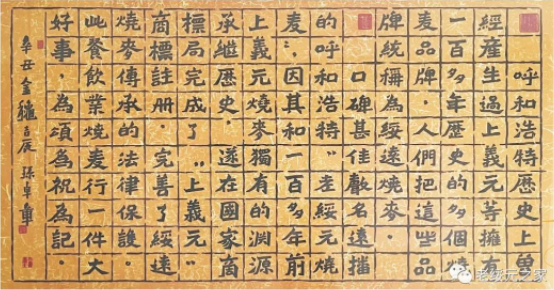 呼和浩特歷史上曽
經産生過上義元等擁有
一百多年歷史的多個燒
麦品牌，人們把這些品
牌統稱為綏遠燒麥．
口碑甚佳聲名遠播
的呼和浩特“老綏元燒
麦”，因其和一百多年前
上義元燒麥獨有的淵源
承継歷史 遂在國家商
標局完成了“上義元”
商標註册．完善了綏遠
燒麥傳承的法律保護．
此餐飲業燒麦行一件大
好事．為頌為祝為記．
辛丑金穐吉辰 孫卓章
老绥元之家